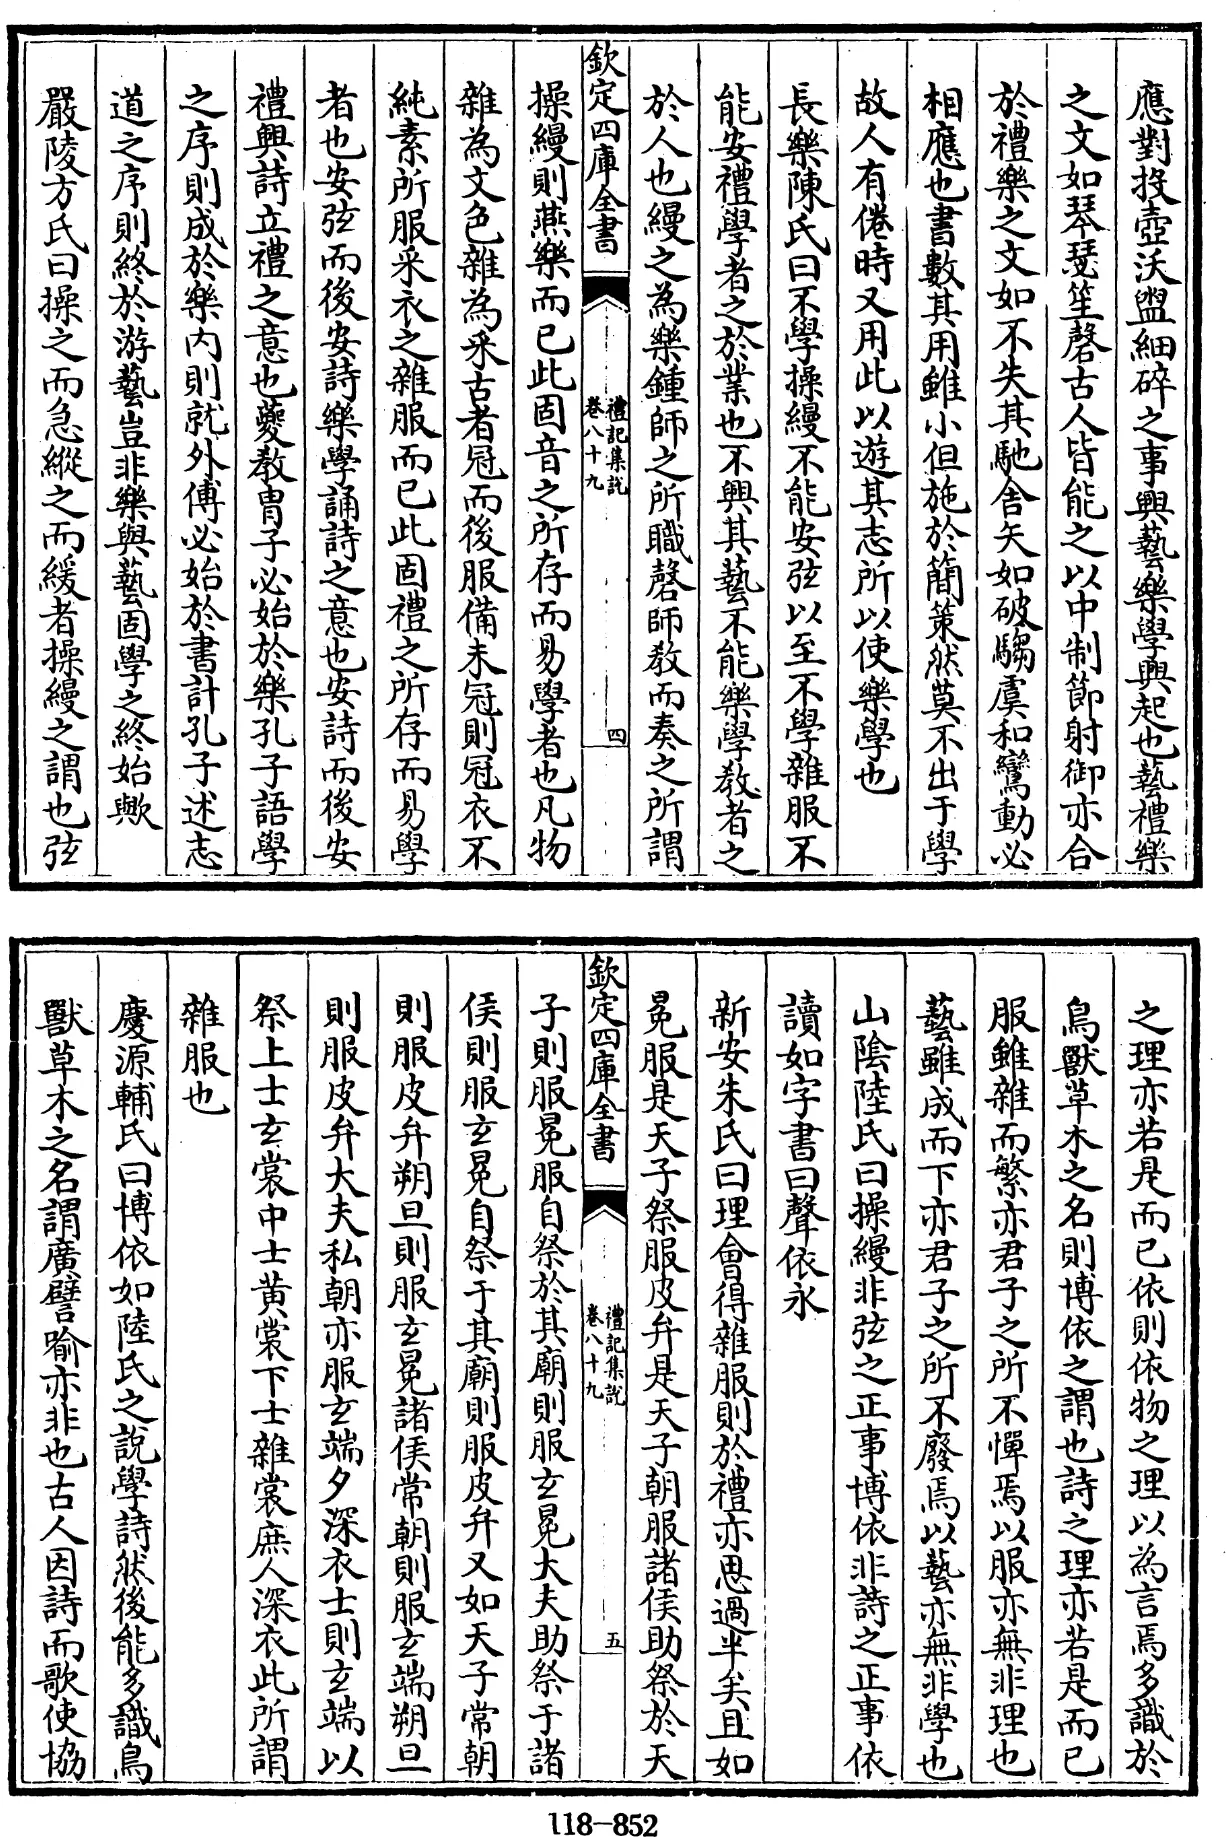 應對投壺沃盥細碎之事興藝樂學興起也藝禮樂
之文如琴瑟笙磬古人皆能之以中制節射御亦合
於禮樂之文如不失其馳舍矢如破騶虞和鸞動必
相應也書數其用雖小但施於簡策然莫不出于學
故人有倦時又用此以遊其志所以使樂學也
長樂陳氏曰不學操縵不能安弦以至不學雜服不
能安禮學者之於業也不興其藝不能樂學教者之
於人也縵之為樂鍾師之所職磬師教而奏之所謂
欽定四庫全書
禮記集說
卷八十九
四
操縵則燕樂而已此固音之所存而易學者也凡物
雜為文色雜為采古者冠而後服備未冠則冠衣不
純素所服采衣之雜服而已此固禮之所存而易學
者也安弦而後安詩樂學誦詩之意也安詩而後安
禮興詩立禮之意也夔教胄子必始於樂孔子語學
之序則成於樂內則就外傅必始於書計孔子述志
道之序則終於游藝豈非樂與藝固學之終始歟
嚴陵方氏曰操之而急縱之而緩者操縵之謂也弦
之理亦若是而已依則依物之理以為言焉多識於
鳥獸草木之名則博依之謂也詩之理亦若是而已
服雖雜而繁亦君子之所不憚焉以服亦無非理也
藝雖成而下亦君子之所不廢焉以藝亦無非學也
山陰陸氏曰操縵非弦之正事博依非詩之正事依
讀如字書曰聲依永
新安朱氏曰理會得雜服則於禮亦思過半矣且如
冕服是天子祭服皮弁是天子朝服諸侯助祭於天
欽定四庫全書
禮記集說
卷八十九
五
子則服冕服自祭於其廟則服玄冕大夫助祭于諸
侯則服玄冕自祭于其廟則服皮弁又如天子常朝
則服皮弁朔旦則服玄冕諸侯常朝則服玄端朔旦
則服皮弁大夫私朝亦服玄端夕深衣士則玄端以
祭上士玄裳中士黃裳下士雜裳庶人深衣此所謂
雜服也
慶源輔氏曰博依如陸氏之說學詩然後能多識鳥
獸草木之名謂廣譬喻亦非也古人因詩而歌使協
118-852